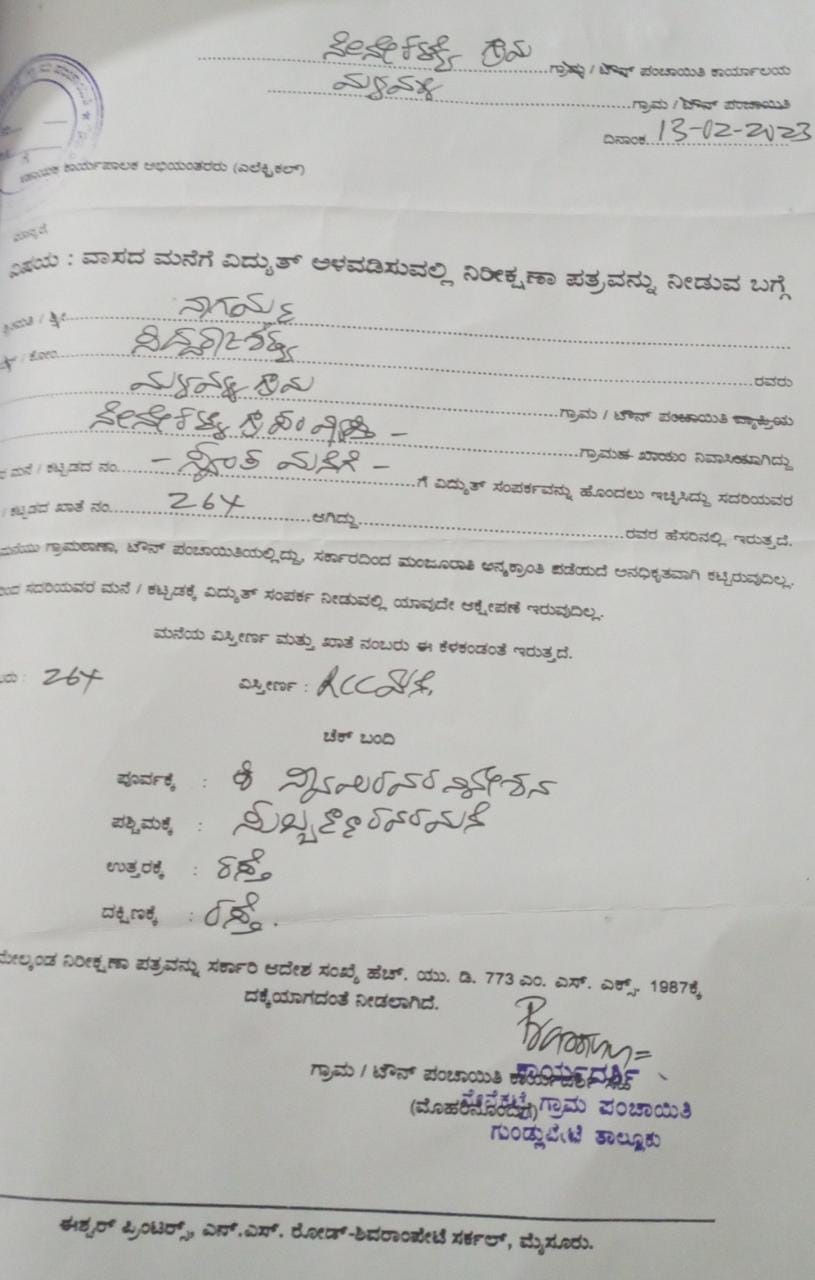 ಗ್ರಾಮ / ಟೌನ್ ಪಂಚಾಯಿತಿ ಕಾರ್ಯಾಲಯ
ಗ್ರಾಮ / ಟೌನ್ ಪಂಚಾಯಿತಿ
ದಿನಾಂಕ 13-02-2023
ಕಾರ್ಯಪಾಲಕ ಅಭಿಯಂತರರು (ಎಲೆಕ್ಟ್ರಿಕಲ್)
ವಿಷಯ : ವಾಸದ ಮನೆಗೆ ವಿದ್ಯುತ್ ಅಳವಡಿಸುವಲ್ಲಿ ನಿರೀಕ್ಷಣಾ ಪತ್ರವನ್ನು ನೀಡುವ ಬಗ್ಗೆ
/ ಶ್ರೀ ನಾಗಮ್ಮ
/ ಕೋಂ ರವರು
ಗ್ರಾಮ ಗ್ರಾಮ / ಟೌನ್ ಪಂಚಾಯಿತಿ ವ್ಯಾಪ್ತಿಯ
ಗ್ರಾಮದ ಖಾಯಂ ನಿವಾಸಿಯಾಗಿದ್ದು
ಮನೆ / ಕಟ್ಟಡದ ನಂ. - ಸ್ವಂತ ಮನೆಗೆ - ಗೆ ವಿದ್ಯುತ್ ಸಂಪರ್ಕವನ್ನು ಹೊಂದಲು ಇಚ್ಛಿಸಿದ್ದು ಸದರಿಯವರ
/ ಕಟ್ಟಡದ ಖಾತೆ ನಂ. 264 ಆಗಿದ್ದು ರವರ ಹೆಸರಿನಲ್ಲಿ ಇರುತ್ತದೆ.
ಮನೆಯು ಗ್ರಾಮಠಾಣಾ, ಟೌನ್ ಪಂಚಾಯಿತಿಯಲ್ಲಿದ್ದು, ಸರ್ಕಾರದಿಂದ ಮಂಜೂರಾತಿ ಅನ್ಯಕ್ರಾಂತಿ ಪಡೆಯದೆ ಅನಧಿಕೃತವಾಗಿ ಕಟ್ಟಿರುವುದಿಲ್ಲ.
ಸದರಿಯವರ ಮನೆ / ಕಟ್ಟಡಕ್ಕೆ ವಿದ್ಯುತ್ ಸಂಪರ್ಕ ನೀಡುವಲ್ಲಿ ಯಾವುದೇ ಆಕ್ಷೇಪಣೆ ಇರುವುದಿಲ್ಲ.
ಮನೆಯ ವಿಸ್ತೀರ್ಣ ಮತ್ತು ಖಾತೆ ನಂಬರು ಈ ಕೆಳಕಂಡಂತೆ ಇರುತ್ತದೆ.
264 ವಿಸ್ತೀರ್ಣ : RCC ಮನೆ.
ಚೆಕ್ ಬಂದಿ
ಪೂರ್ವಕ್ಕೆ :
ಪಶ್ಚಿಮಕ್ಕೆ :
ಉತ್ತರಕ್ಕೆ : ರಸ್ತೆ
ದಕ್ಷಿಣಕ್ಕೆ : ರಸ್ತೆ.
ಮೇಲ್ಕಂಡ ನಿರೀಕ್ಷಣಾ ಪತ್ರವನ್ನು ಸರ್ಕಾರಿ ಆದೇಶ ಸಂಖ್ಯೆ ಹೆಚ್. ಯು. ಡಿ. 773 ಎಂ. ಎಸ್. ಎಕ್ಸ್. 1987ಕ್ಕೆ
ದಕ್ಕೆಯಾಗದಂತೆ ನೀಡಲಾಗಿದೆ.
ಗ್ರಾಮ / ಟೌನ್ ಪಂಚಾಯಿತಿ ಕಾರ್ಯದರ್ಶಿ
ಗ್ರಾಮ ಪಂಚಾಯಿತಿ
ಗುಂಡ್ಲುಪೇಟೆ ತಾಲ್ಲೂಕು
ಈಶ್ವರ್ ಪ್ರಿಂಟರ್ಸ್, ಎನ್.ಎಸ್. ರೋಡ್-ಶಿವರಾಂಪೇಟೆ ಸರ್ಕಲ್, ಮೈಸೂರು.